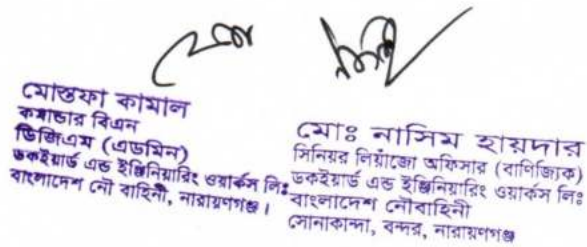 মোস্তফা কামাল
কমান্ডার বিএন
ডিজিএম (এডমিন)
ডকইয়ার্ড এন্ড ইঞ্জিনিয়ারিং ওয়ার্কস লিঃ
বাংলাদেশ নৌ বাহিনী, নারায়ণগঞ্জ।
মোঃ নাসিম হায়দার
সিনিয়র লিয়াঁজো অফিসার (বাণিজ্যিক)
ডকইয়ার্ড এন্ড ইঞ্জিনিয়ারিং ওয়ার্কস লিঃ
বাংলাদেশ নৌবাহিনী
সোনাকান্দা, বন্দর, নারায়ণগঞ্জ